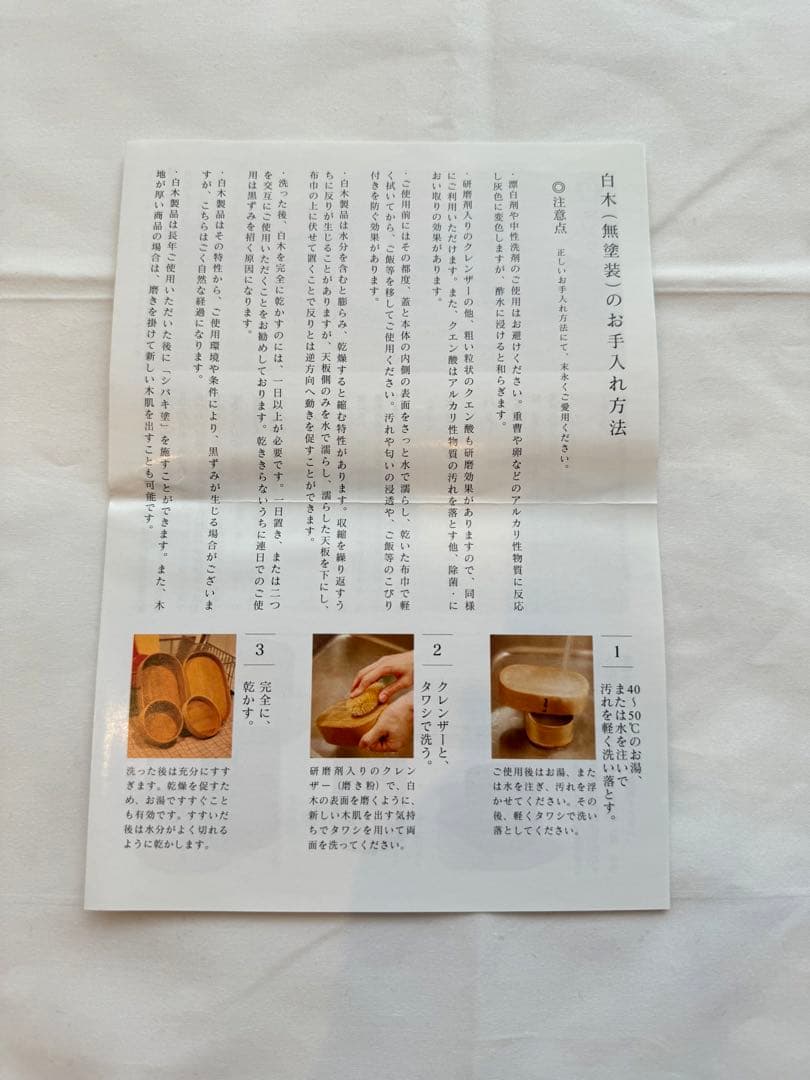 白木（無塗装）のお手入れ方法
◎注意点 正しいお手入れ方法にて、末永くご愛用ください。
・漂白剤や中性洗剤のご使用はお避けください。重曹や卵などのアルカリ性物質に反応
し灰色に変色しますが、酢水に浸けると和らぎます。
・研磨剤入りのクレンザーの他、粗い粒状のクエン酸も研磨効果がありますので、同様
にご利用いただけます。また、クエン酸はアルカリ性物質の汚れを落とす他、除菌・に
おい取りの効果があります。
・ご使用前にはその都度、蓋と本体の内側の表面をさっと水で濡らし、乾いた布巾で軽
く拭いてから、ご飯等を移してご使用ください。汚れや匂いの浸透や、ご飯等のこびり
付きを防ぐ効果があります。
・白木製品は水分を含むと膨らみ、乾燥すると縮む特性があります。収縮を繰り返すう
ちに反りが生じることがありますが、天板側のみを水で濡らし、濡らした天板を下にし、
布巾の上に伏せて置くことで反りとは逆方向へ動きを促すことができます。
・洗った後、白木を完全に乾かすのには、一日以上が必要です。一日置き、または二つ
を交互にご使用いただくことをお勧めしております。乾ききらないうちに連日でのご使
用は黒ずみを招く原因になります。
・白木製品はその特性から、ご使用環境や条件により、黒ずみが生じる場合がございま
すが、こちらはごく自然な経過になります。
・白木製品は長年ご使用いただいた後に「シバキ塗」を施すことができます。また、木
地が厚い商品の場合は、磨きを掛けて新しい木肌を出すことも可能です。
1
40〜50℃のお湯、
または水を注いで
汚れを軽く洗い落とす。
ご使用後はお湯、また
は水を注ぎ、汚れを浮
かせてください。その
後、軽くタワシで洗い
落としてください。
2
クレンザーと、
タワシで洗う。
研磨剤入りのクレン
ザー（磨き粉）で、白
木の表面を磨くように、
新しい木肌を出す気持
ちでタワシを用いて両
面を洗ってください。
3
完全に、
乾かす。
洗った後は充分にすす
ぎます。乾燥を促すた
め、お湯ですすぐこと
も有効です。すすいだ
後は水分がよく切れる
ように乾かします。